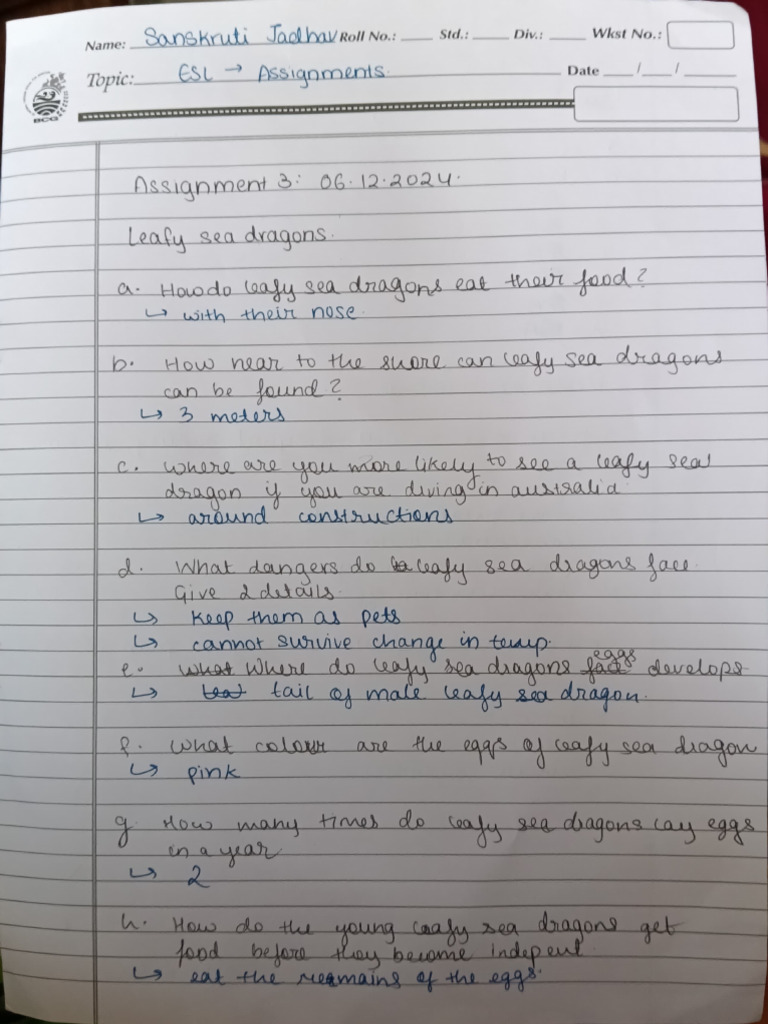 Name: Sanskruti Jadhav Roll No.: ____ Std.: ____ Div.: ____ Wkst No.:
Topic: ESL → Assignments. Date ___/___/_____
BCG
Assignment 3: 06.12.2024.
Leafy sea dragons.
a. How do leafy sea dragons eat their food?
↳ with their nose.
b. How near to the shore can leafy sea dragons
can be found?
↳ 3 meters
c. Where are you more likely to see a leafy sea
dragon if you are diving in australia
↳ around constructions
d. What dangers do leafy sea dragons face.
Give 2 details.
↳ keep them as pets
↳ cannot survive change in temp.
e. Where do leafy sea dragons eggs develops
↳ tail of male leafy sea dragon.
f. What colour are the eggs of leafy sea dragon
↳ pink
g. How many times do leafy sea dragons lay eggs
in a year
↳ 2
h. How do the young leafy sea dragons get
food before they become indepent
↳ eat the remains of the eggs.